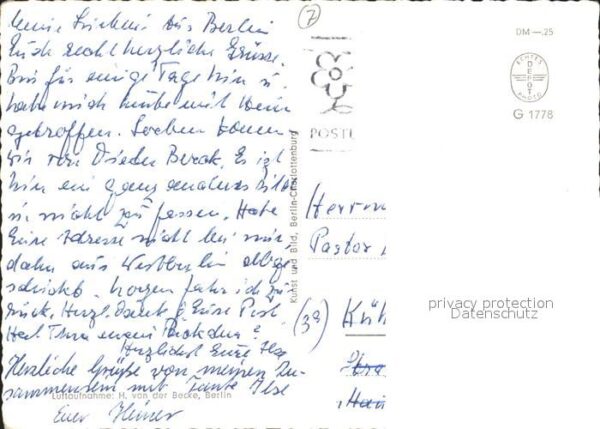 Meine Lieben! Aus Berlin
Euch recht herzliche Grüsse.
Bin für einige Tage hier u.
habe mich heute mit Heiner
getroffen. Soeben kommen
wir von drüben zurück. Es ist
hier ein ganz anderes Bild
nicht zu fassen. Habe
Eure Adresse nicht bei mir
daher aus Westberlin abge-
schickt. Morgen fahr ich zu-
rück. Herzl. Dank f. Eure Post
Herzlichst Eure Ilse
Herzliche Grüße von meinem Zu-
sammensein mit Tante Ilse
Euer Heiner
Luftaufnahme: H. von der Becke, Berlin
Kunst und Bild, Berlin-Charlottenburg
7
POSTL
DM —.25
ECHTES
DEPOT
PHOTO
G 1778
Herrn
Pastor
(3a) Küh
privacy protection
Datenschutz